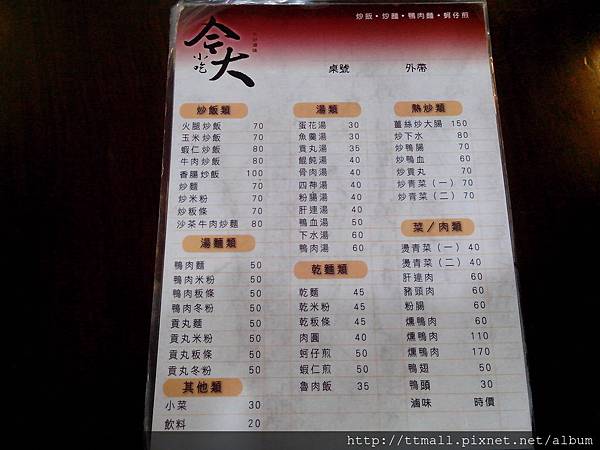 炒飯・炒麵・鴨肉麵・蚵仔煎
今大
小吃
桌號 外帶
炒飯類
火腿炒飯 70
玉米炒飯 70
蝦仁炒飯 80
牛肉炒飯 80
香腸炒飯 100
炒麵 70
炒米粉 70
炒粄條 70
沙茶牛肉炒麵 80
湯麵類
鴨肉麵 50
鴨肉米粉 50
鴨肉粄條 50
鴨肉冬粉 50
貢丸麵 50
貢丸米粉 50
貢丸粄條 50
貢丸冬粉 50
其他類
小菜 30
飲料 20
湯類
蛋花湯 30
魚羹湯 30
貢丸湯 35
餛飩湯 40
骨肉湯 40
四神湯 40
粉腸湯 40
肝連湯 40
鴨血湯 50
下水湯 60
鴨肉湯 60
乾麵類
乾麵 45
乾米粉 45
乾粄條 45
肉圓 40
蚵仔煎 50
蝦仁煎 50
魯肉飯 35
熱炒類
薑絲炒大腸 150
炒下水 80
炒鴨腸 70
炒鴨血 60
炒貢丸 70
炒青菜（一） 70
炒青菜（二） 70
菜／肉類
燙青菜（一） 40
燙青菜（二） 40
肝連肉 60
豬頭肉 60
粉腸 60
燻鴨肉 60
燻鴨肉 110
燻鴨肉 170
鴨翅 50
鴨頭 30
滷味 時價
http://ttmall.pixnet.net/album